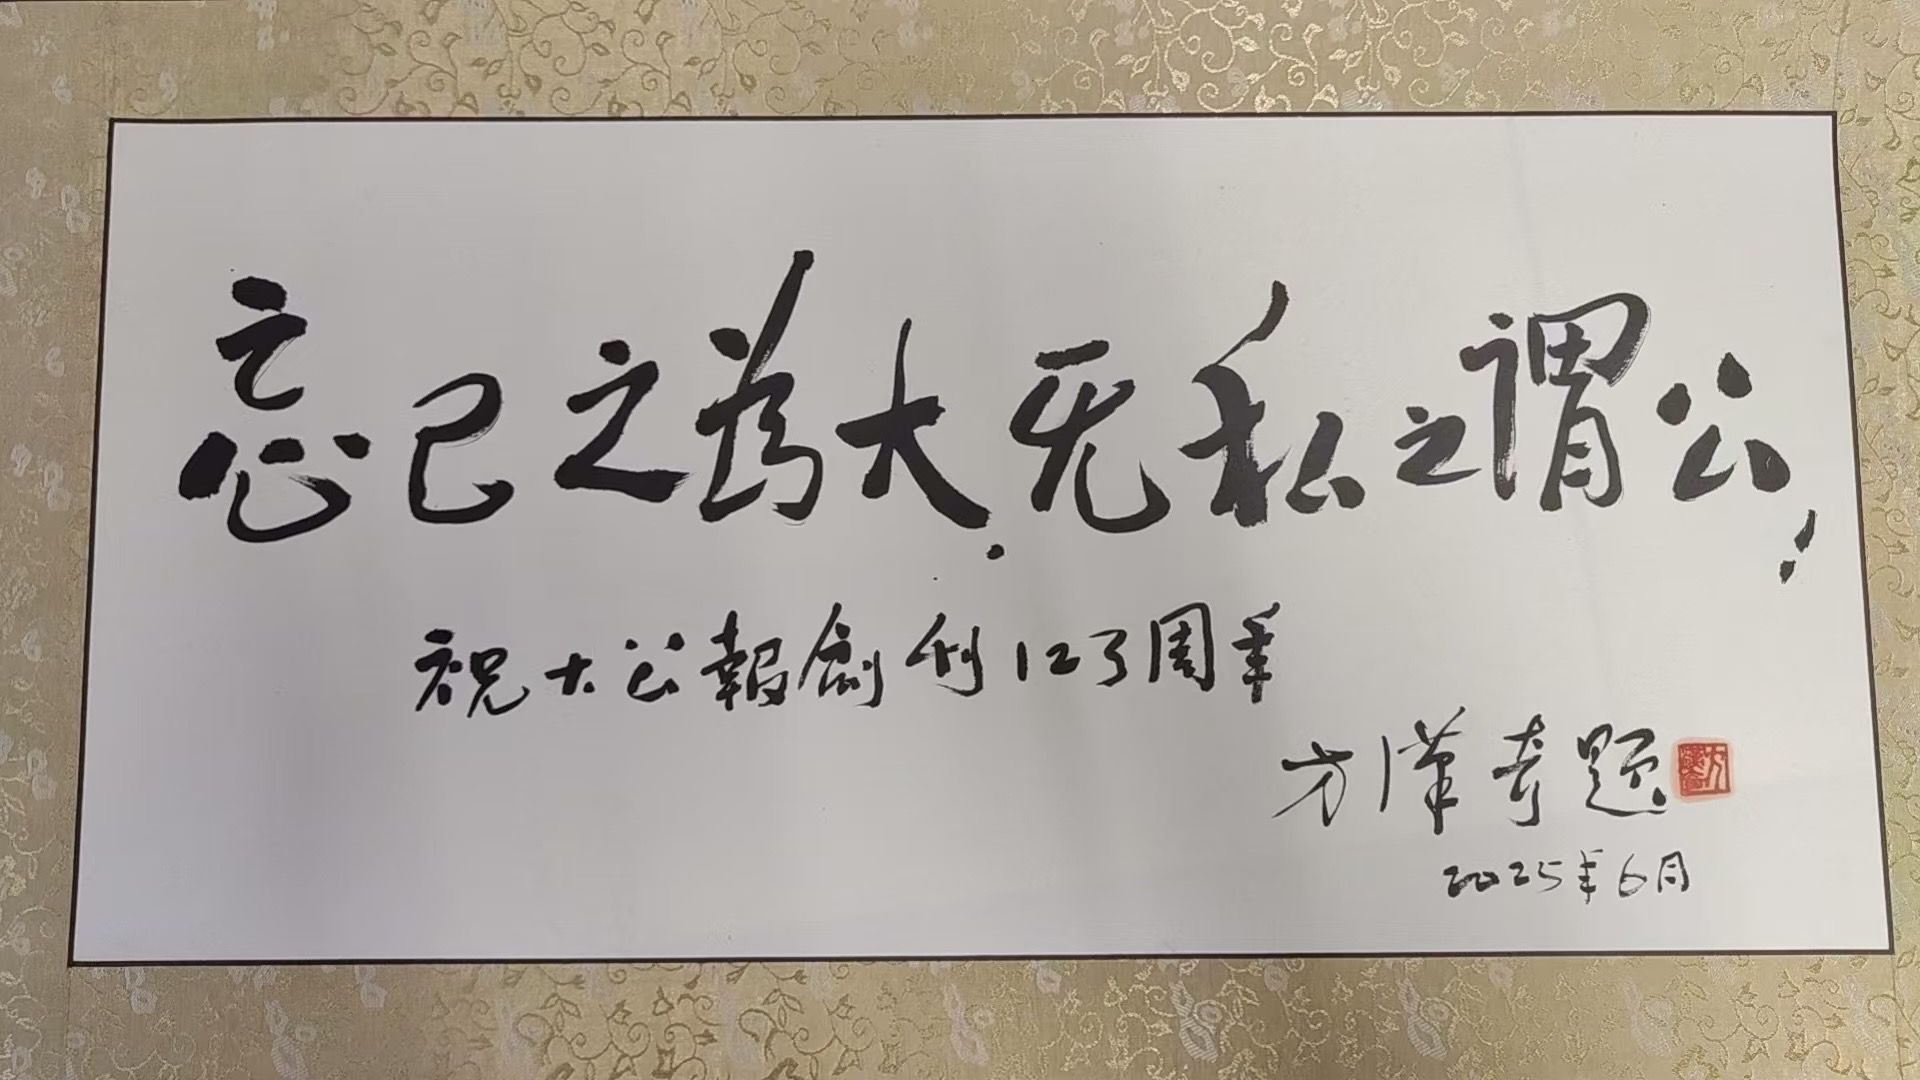 忘己之为大.无私之谓公!
祝大公報創刊123周年
方漢奇題
2025年6月